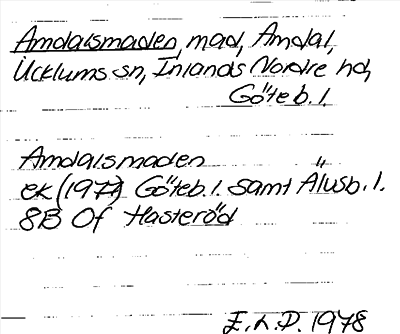 Amdalsmaden, mad, Amdal,
Ucklums sn, Inlands Nordre hd,
Göteb. l.
Amdalsmaden
ek (1977) Göteb. l. samt Älvsb. l.
8B 0f Hasteröd
E.h.D. 1978